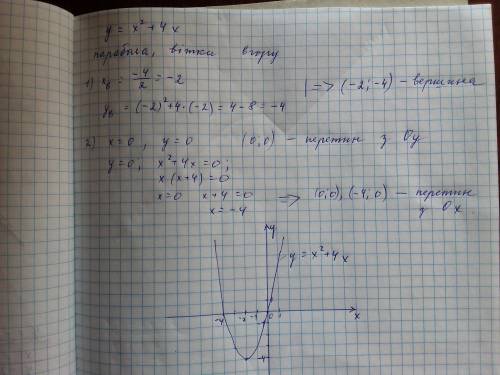 y = x² + 4x
парабола, вітки вгору
1) x_в = -4/2 = -2
y_в = (-2)² + 4·(-2) = 4 - 8 = -4 | => (-2; -4) - вершина
2) x = 0, y = 0 (0;0) - перетин з Оу
y = 0, x² + 4x = 0;
x (x+4) = 0
x = 0 x + 4 = 0 => (0;0), (-4; 0) - перетин
x = -4 з Ох
y
y = x² + 4x
-4 -2 -1 0 1 x
-4